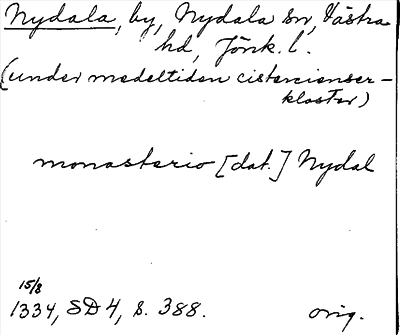 Nydala, by, Nydala sn, Västra
hd, Jönk. l.
(under medeltiden cistercienser-
kloster)
monasterio [dat.] Nydal
15/8
1334, SD 4, s. 388. orig.